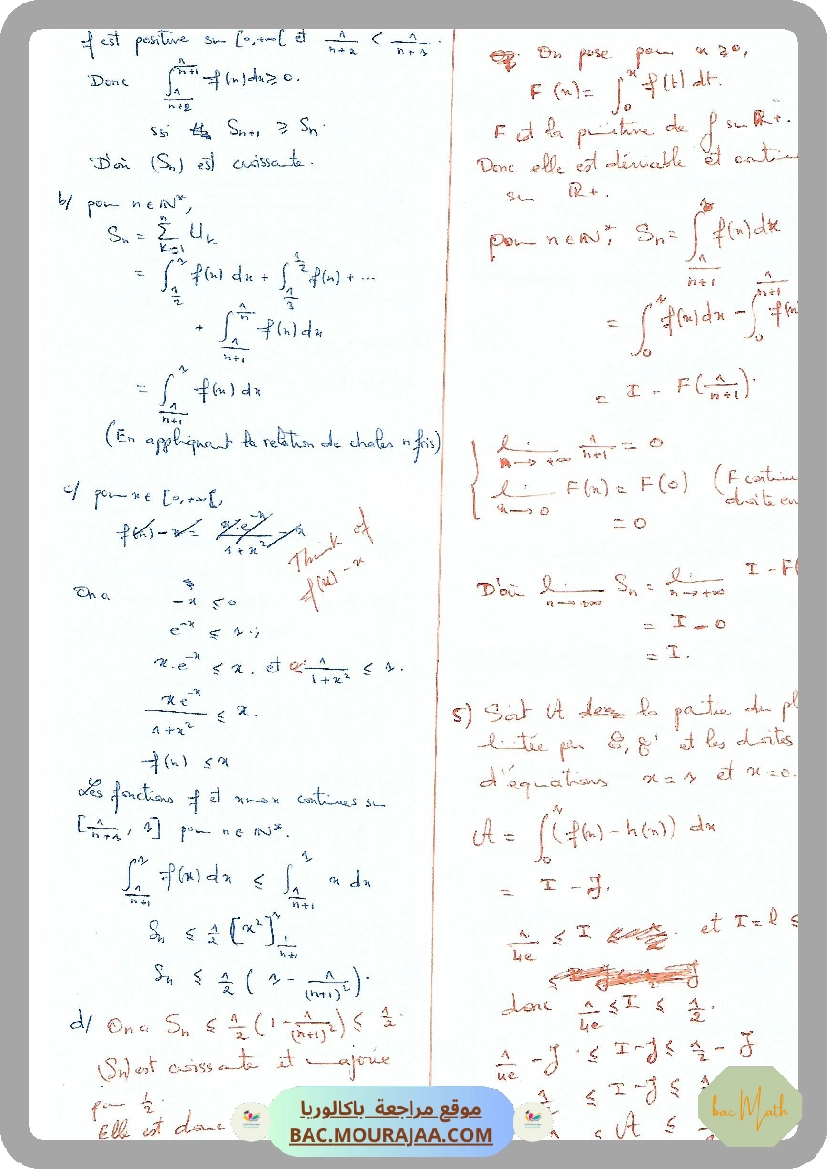 f est positive sur [0,+∞[ et 1/(n+2) < 1/(n+1).
Donc ∫_{1/(n+2)}^{1/(n+1)} f(x)dx ≥ 0.
ssi S_{n+1} ≥ S_n.
D'où (S_n) est croissante.
b/ pour n ∈ ℕ*,
S_n = Σ_{k=1}^{n} U_k
= ∫_{1/2}^{1} f(x) dx + ∫_{1/3}^{1/2} f(x) + ...
+ ∫_{1/(n+1)}^{1/n} f(x) dx
= ∫_{1/(n+1)}^{1} f(x) dx
(En appliquant la relation de chales n fois)
c/ pour x ∈ [0,+∞[,
f(x) - x = x e^{-x}/(1+x²) - x
Think of
f(x) - x
On a -x ≤ 0
e^{-x} ≤ 1 ;
x.e^{-x} ≤ x. et 1/(1+x²) ≤ 1.
x e^{-x}/(1+x²) ≤ x.
f(x) ≤ x
Les fonctions f et x↦x continues sur
[1/(n+1), 1] pour n ∈ ℕ*.
∫_{1/(n+1)}^{1} f(x) dx ≤ ∫_{1/(n+1)}^{1} x dx
S_n ≤ 1/2 [x²]_{1/(n+1)}^{1}
S_n ≤ 1/2 (1 - 1/(n+1)²).
d/ On a S_n ≤ 1/2 (1 - 1/(n+1)²) ≤ 1/2.
(S_n) est croissante et majorée
par 1/2.
Elle est donc
On pose pour x ≥ 0,
F(x) = ∫_0^x f(t) dt.
F est la primitive de f sur ℝ+.
Donc elle est dérivable et contin
sur ℝ+.
pour n ∈ ℕ*, S_n = ∫_{1/(n+1)}^{1} f(x) dx
= ∫_0^1 f(x) dx - ∫_0^{1/(n+1)} f(x
= I - F(1/(n+1)).
lim_{n→+∞} 1/(n+1) = 0
lim_{x→0} F(x) = F(0) (F continue
droite en
= 0
D'où lim_{n→+∞} S_n = lim_{n→+∞} I - F(
= I - 0
= I.
5) Soit A la partie du pl
litée par C, C' et les droites
d'équations x = 1 et x = 0.
A = ∫_0^1 (f(x) - h(x)) dx
= I - J.
1/4e ≤ I et I = l ≤
donc 1/4e ≤ I ≤ 1/2.
1/4e - J ≤ I - J ≤ 1/2 - J
≤ I - J ≤
≤ A ≤
bac Math
موقع مراجعة باكالوريا
BAC.MOURAJAA.COM